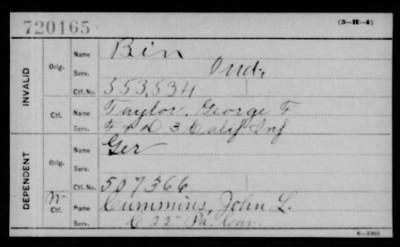 720165
(3-H-4)
INVALID
Orig.
Name Bin
Serv. Ond.
Ctf. No. 553,534
Ctf.
Name Taylor, George F
Serv. F & D 3 Calif Inf
DEPENDENT
Orig.
Name Ger
Serv.
Ctf. No. 507366
W
Ctf.
Name Cummins, John L.
Serv. C 22" Pa. Cav.